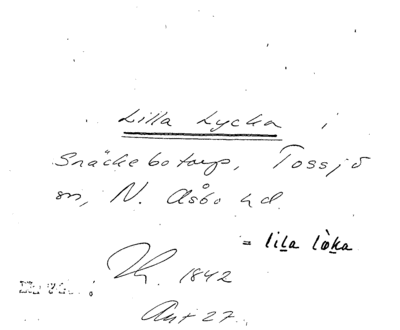 Lilla Lycka i
Snäckebotorp, Tossjö
sn, N. Åsbo hd.
= lila lòka
1842
Ant 27.